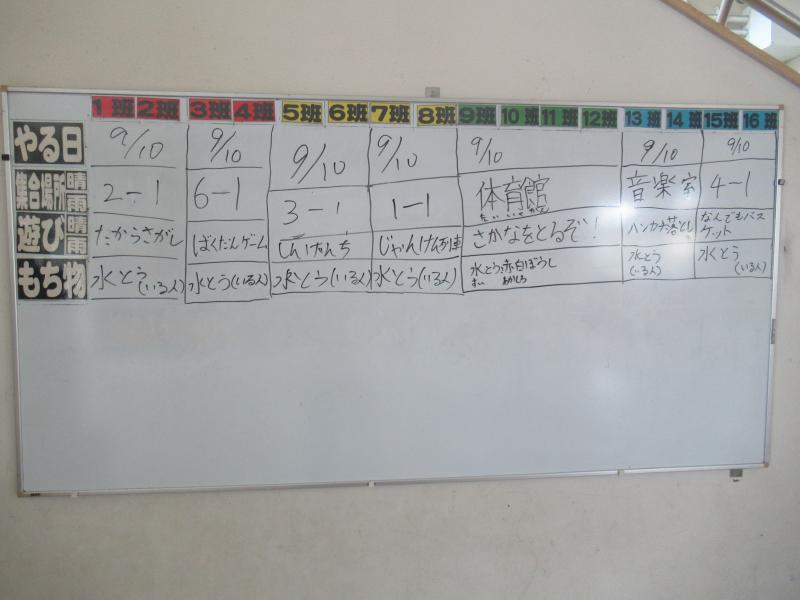 1班 2班 3班 4班 5班 6班 7班 8班 9班 10班 11班 12班 13班 14班 15班 16班
やる日 9/10 9/10 9/10 9/10 9/10 9/10 9/10
集合場所 晴雨 2-1 6-1 3-1 1-1 体育館 音楽室 4-1
たいいくかん
遊び 晴雨 たからさがし ばくだんゲーム じゃんけん列車 さかなをとるぞ! ハンカチ落とし なんでもバス
ケット
もち物 水とう(いる人) 水とう(いる人) 水とう(いる人) 水とう(いる人) 水とう、赤白ぼうし 水とう(いる人) 水とう(いる人)
すい あかしろ